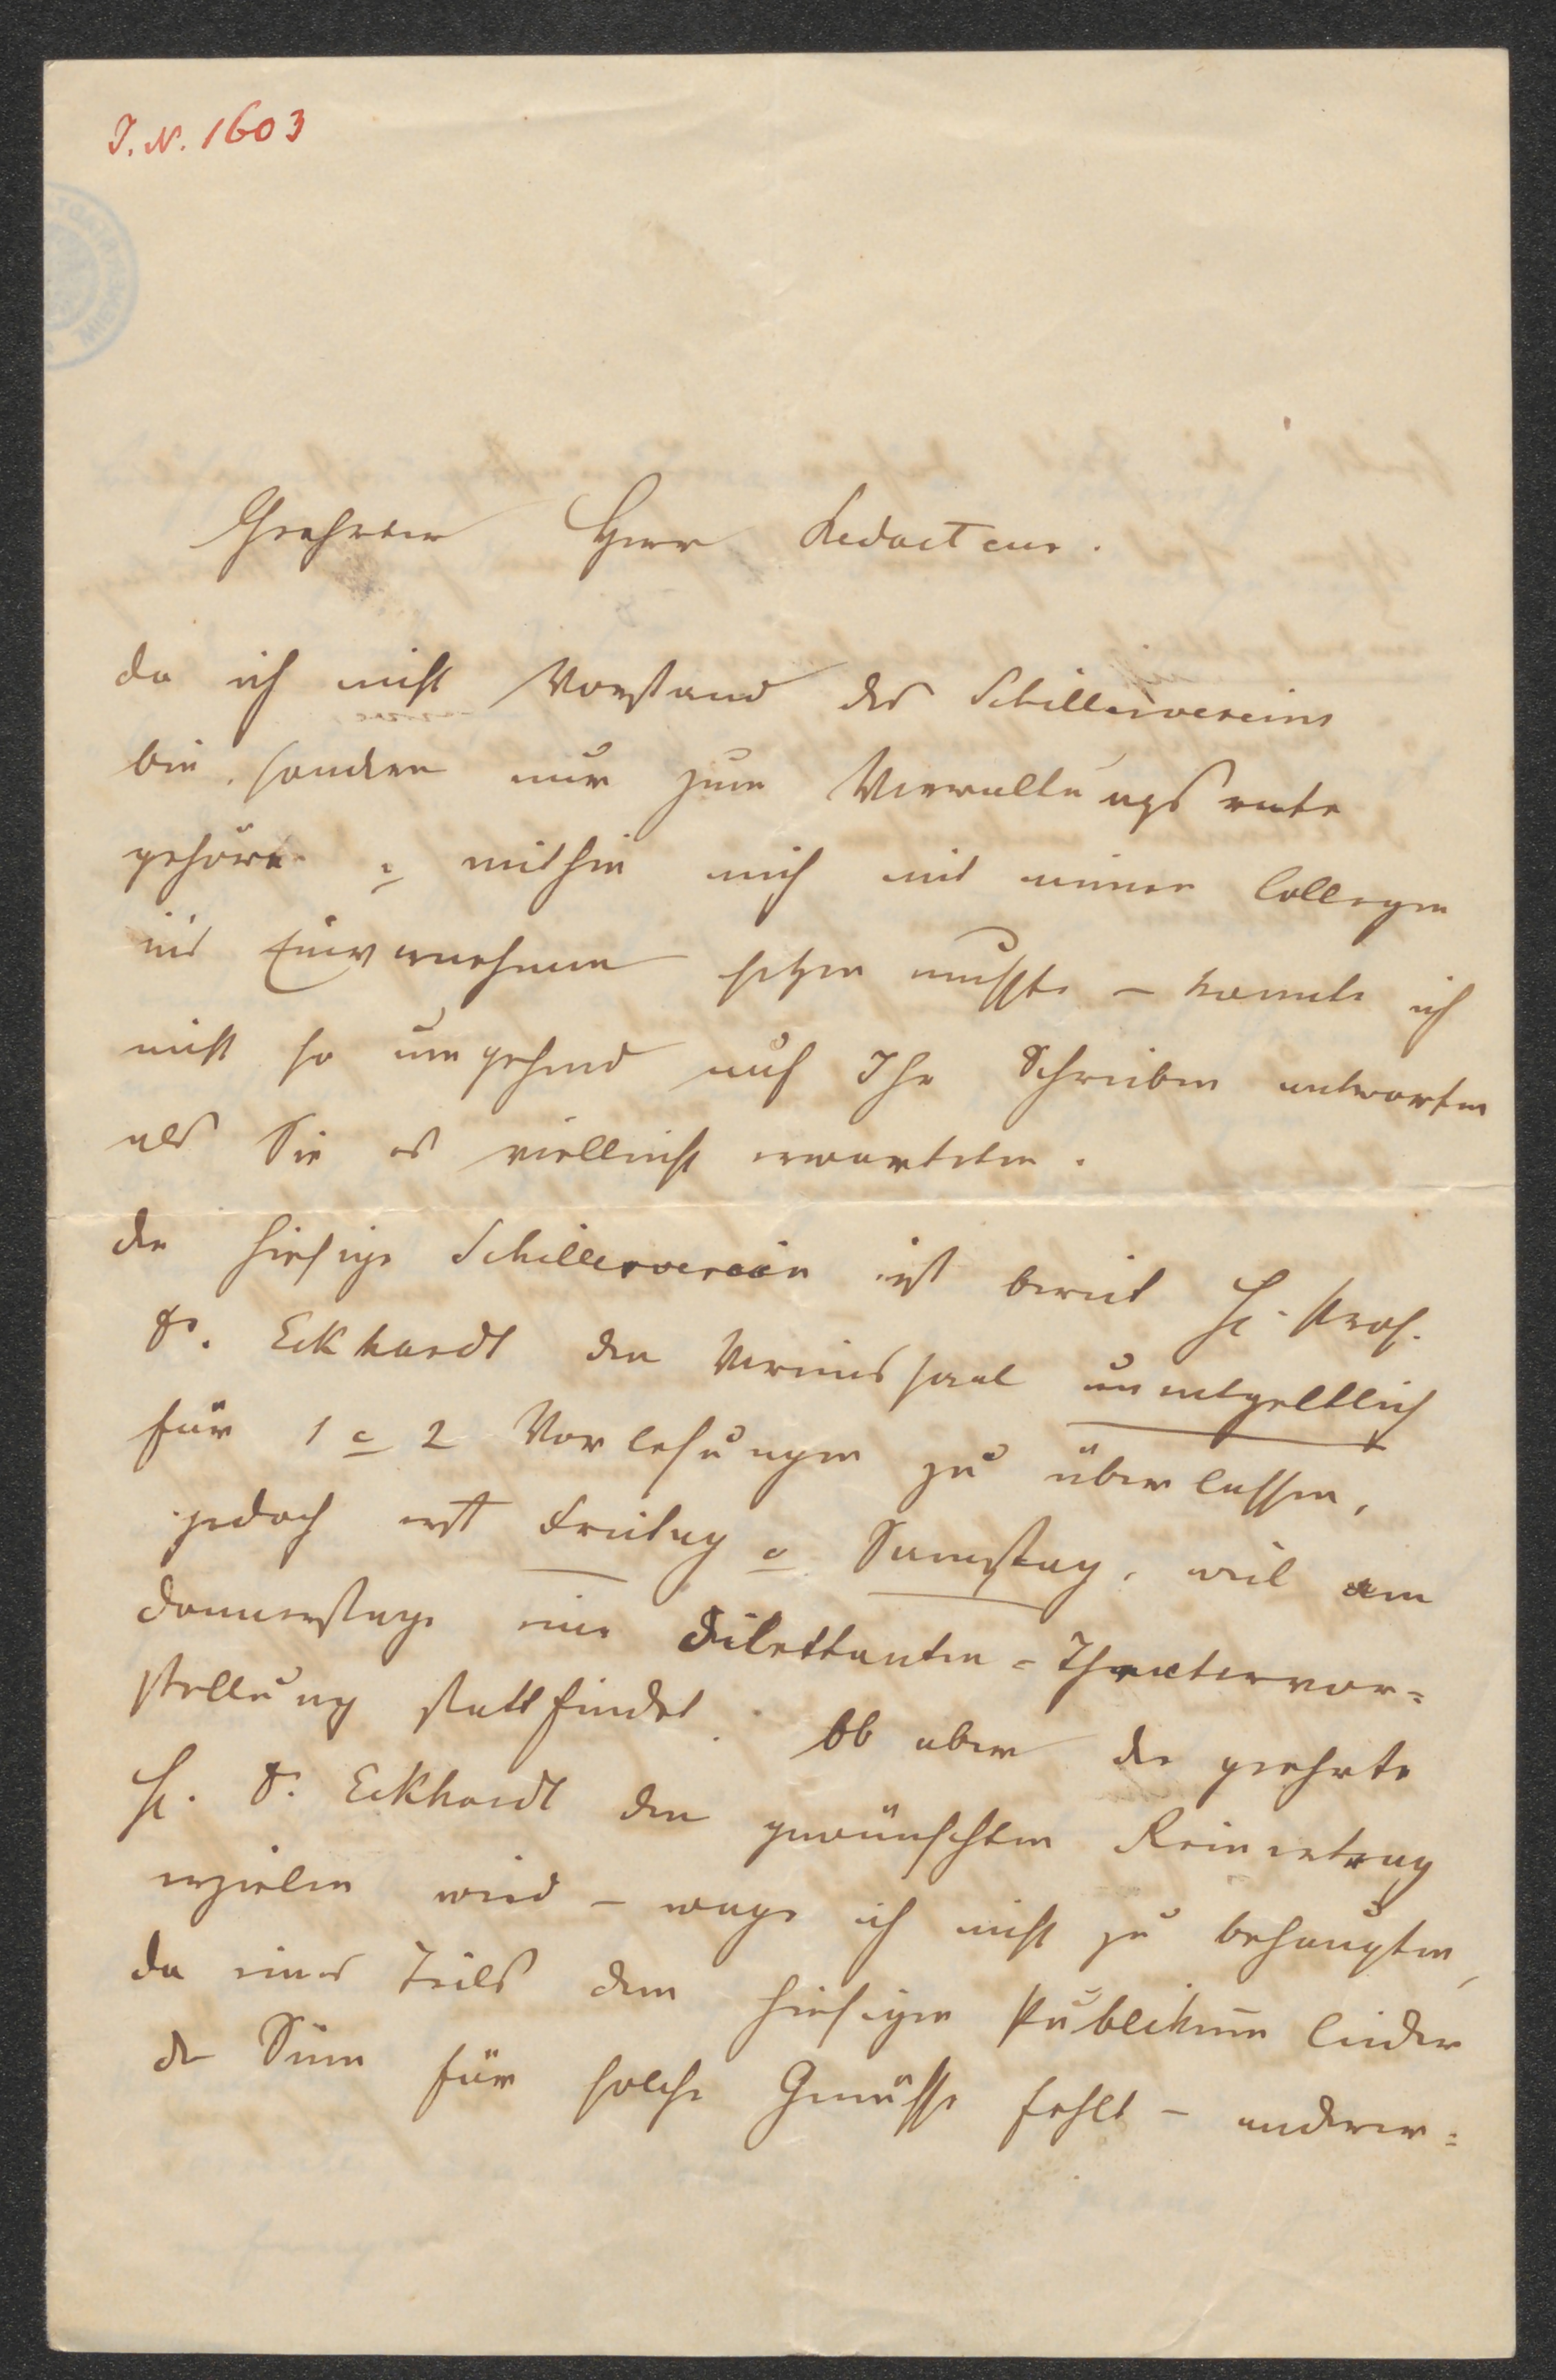 J. N. 1603
Geehrter Herr Redacteur.
da ich nicht Vorstand des Schillervereins
bin, sondern nur zum Verwaltungsrate
gehöre & mithin mich mit meinen Collegen
ins Einvernehmen setzen mußte – konnte ich
nicht so umgehend auf Ihr Schreiben antworten
als Sie es vielleicht erwarteten.
der hiesige Schillerverein ist bereit H. Prof.
Dr. Eckhardt den Vereinssaal unentgeltlich
für 1 & 2 Vorlesungen zu überlassen,
jedoch erst Freitag & Samstag, weil am
Donnerstage eine Dilettanten-Theatervor=
stellung stattfindet. Ob aber der geehrte
H. Dr. Eckhardt den gewünschten Reinertrag
erzielen wird – wage ich nicht zu behaupten,
da eines Teils dem hiesigen Publikum leider
der Sinn für solche Genüsse fehlt – anderer=